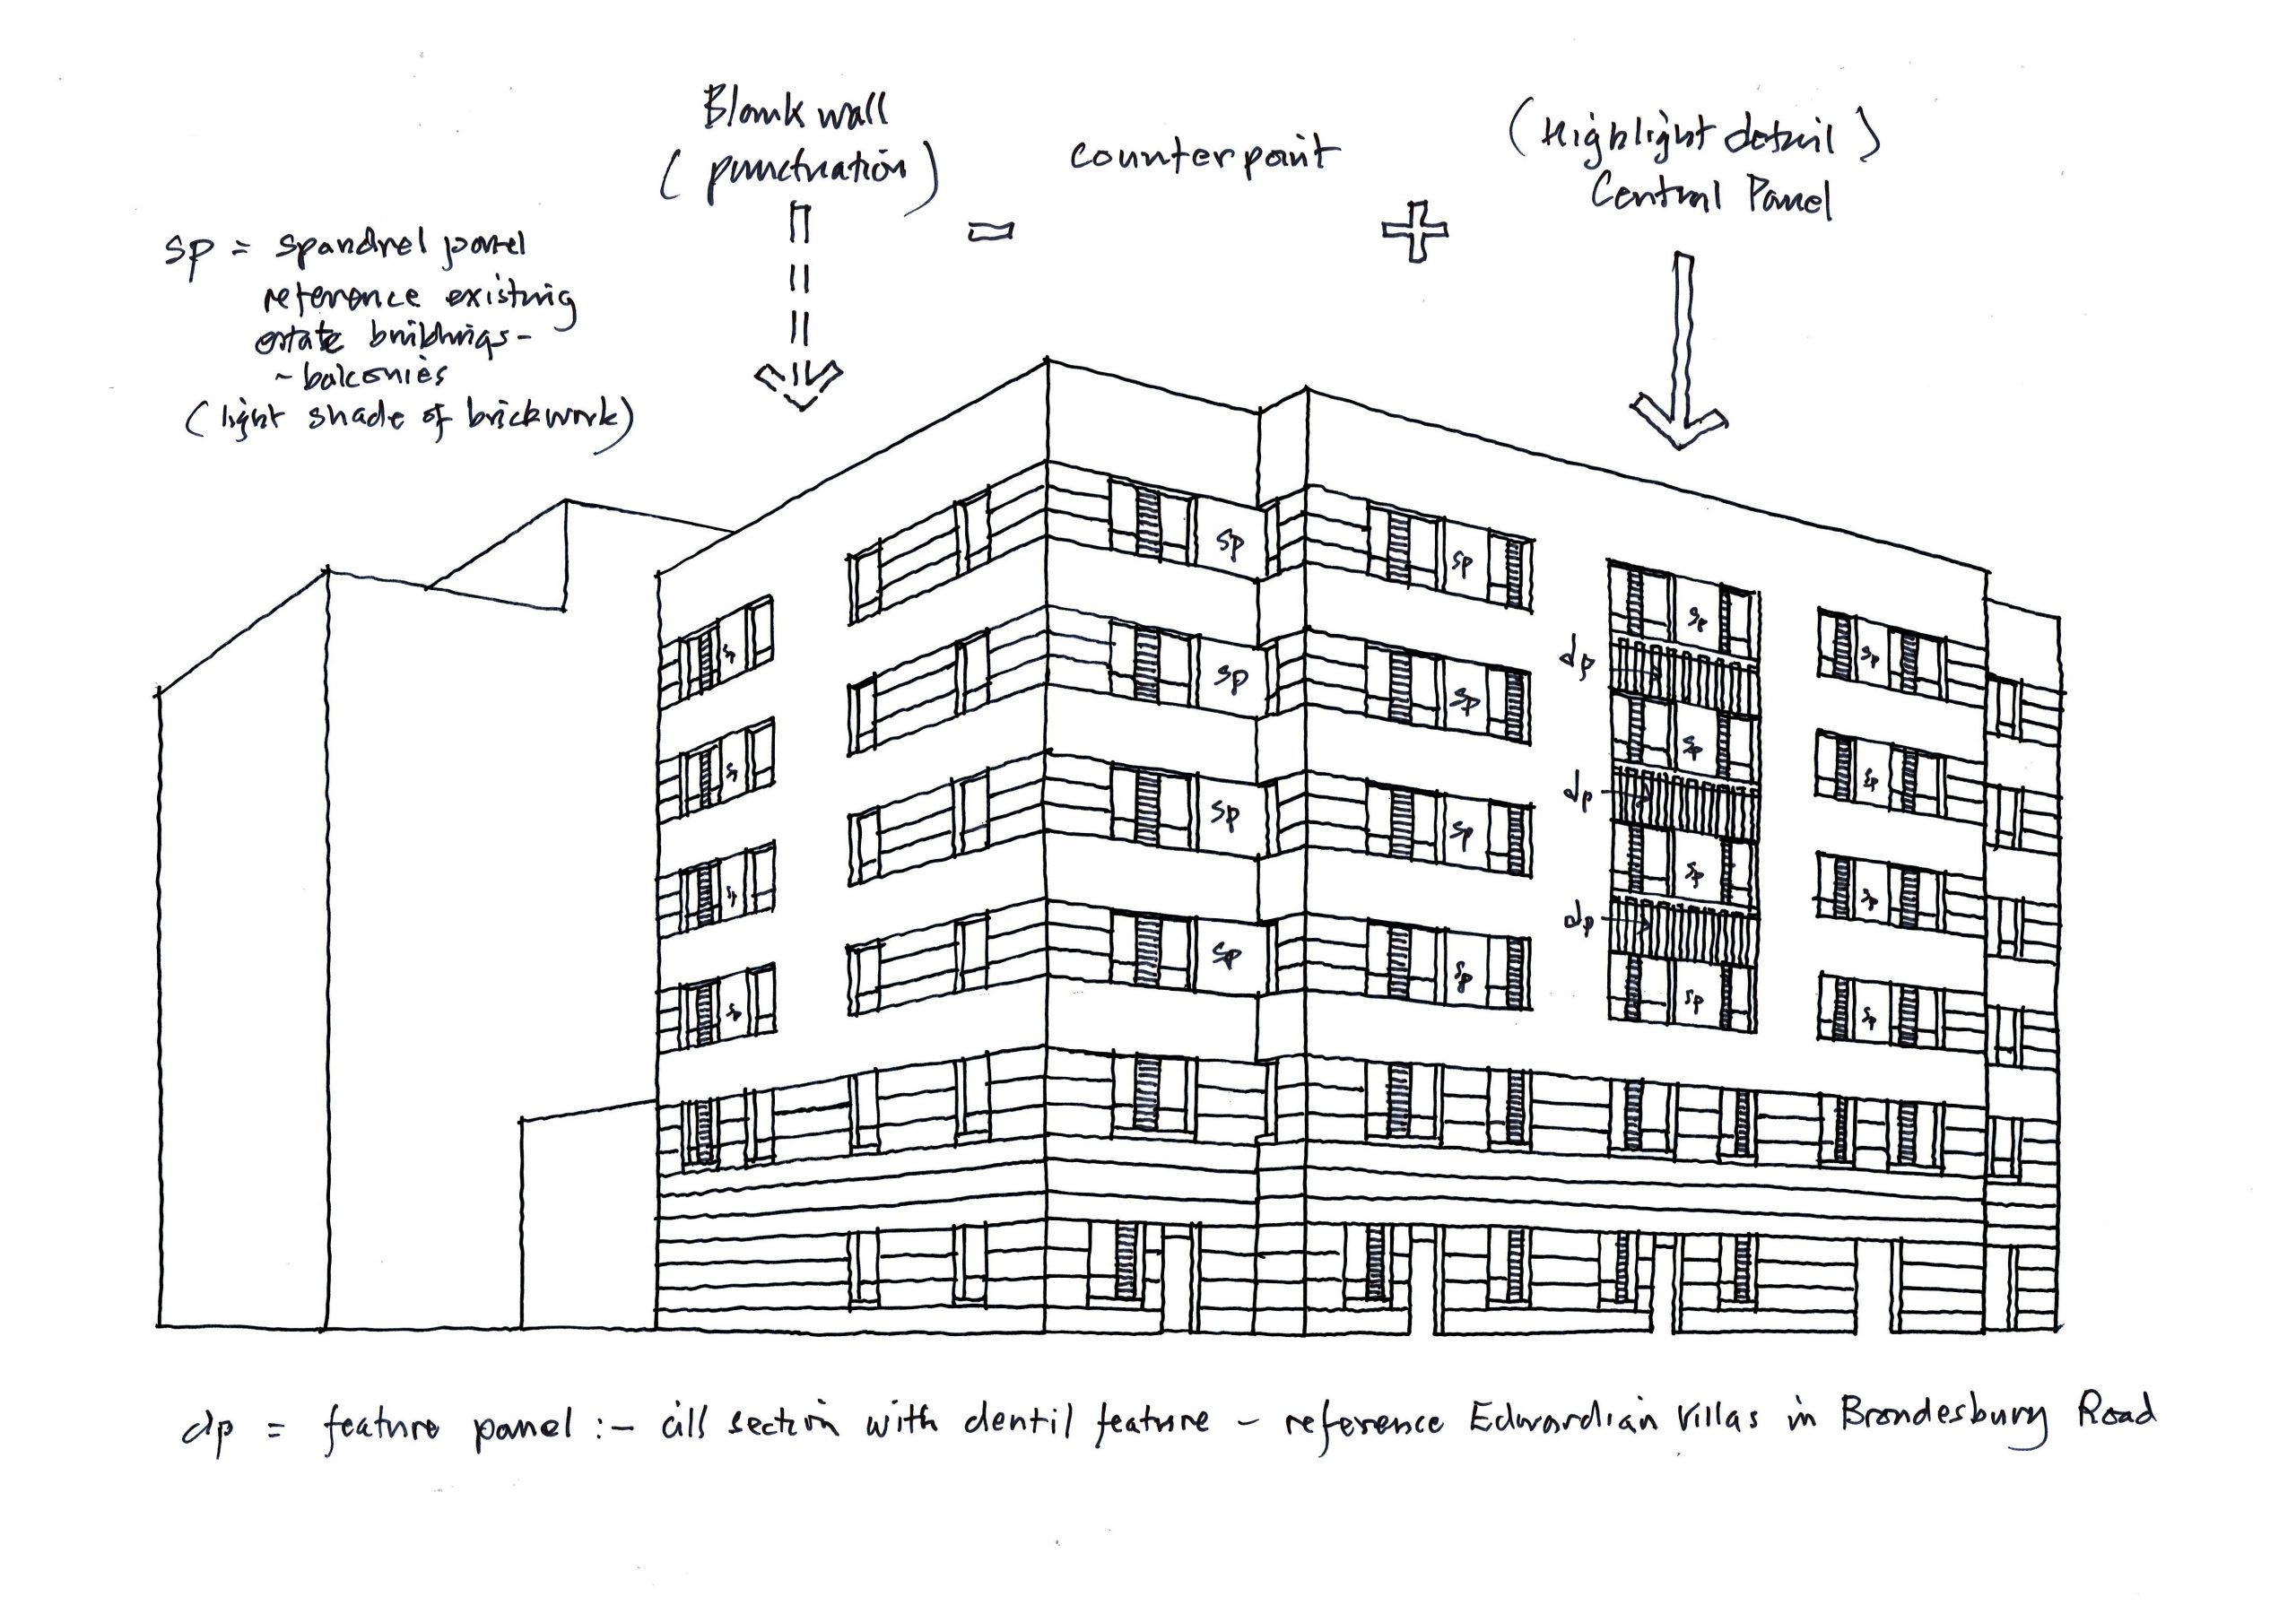 Blank wall
(punctuation)
=
counterpoint
+
(Highlight detail)
Central Panel
sp = spandrel panel
reference existing
estate buildings -
- balconies
(light shade of brickwork)
sp
sp
sp
sp
sp
sp
sp
sp
sp
sp
sp
sp
sp
sp
sp
sp
sp
sp
sp
sp
dp
dp
dp
dp = feature panel :- cill section with dentil feature - reference Edwardian Villas in Brondesbury Road